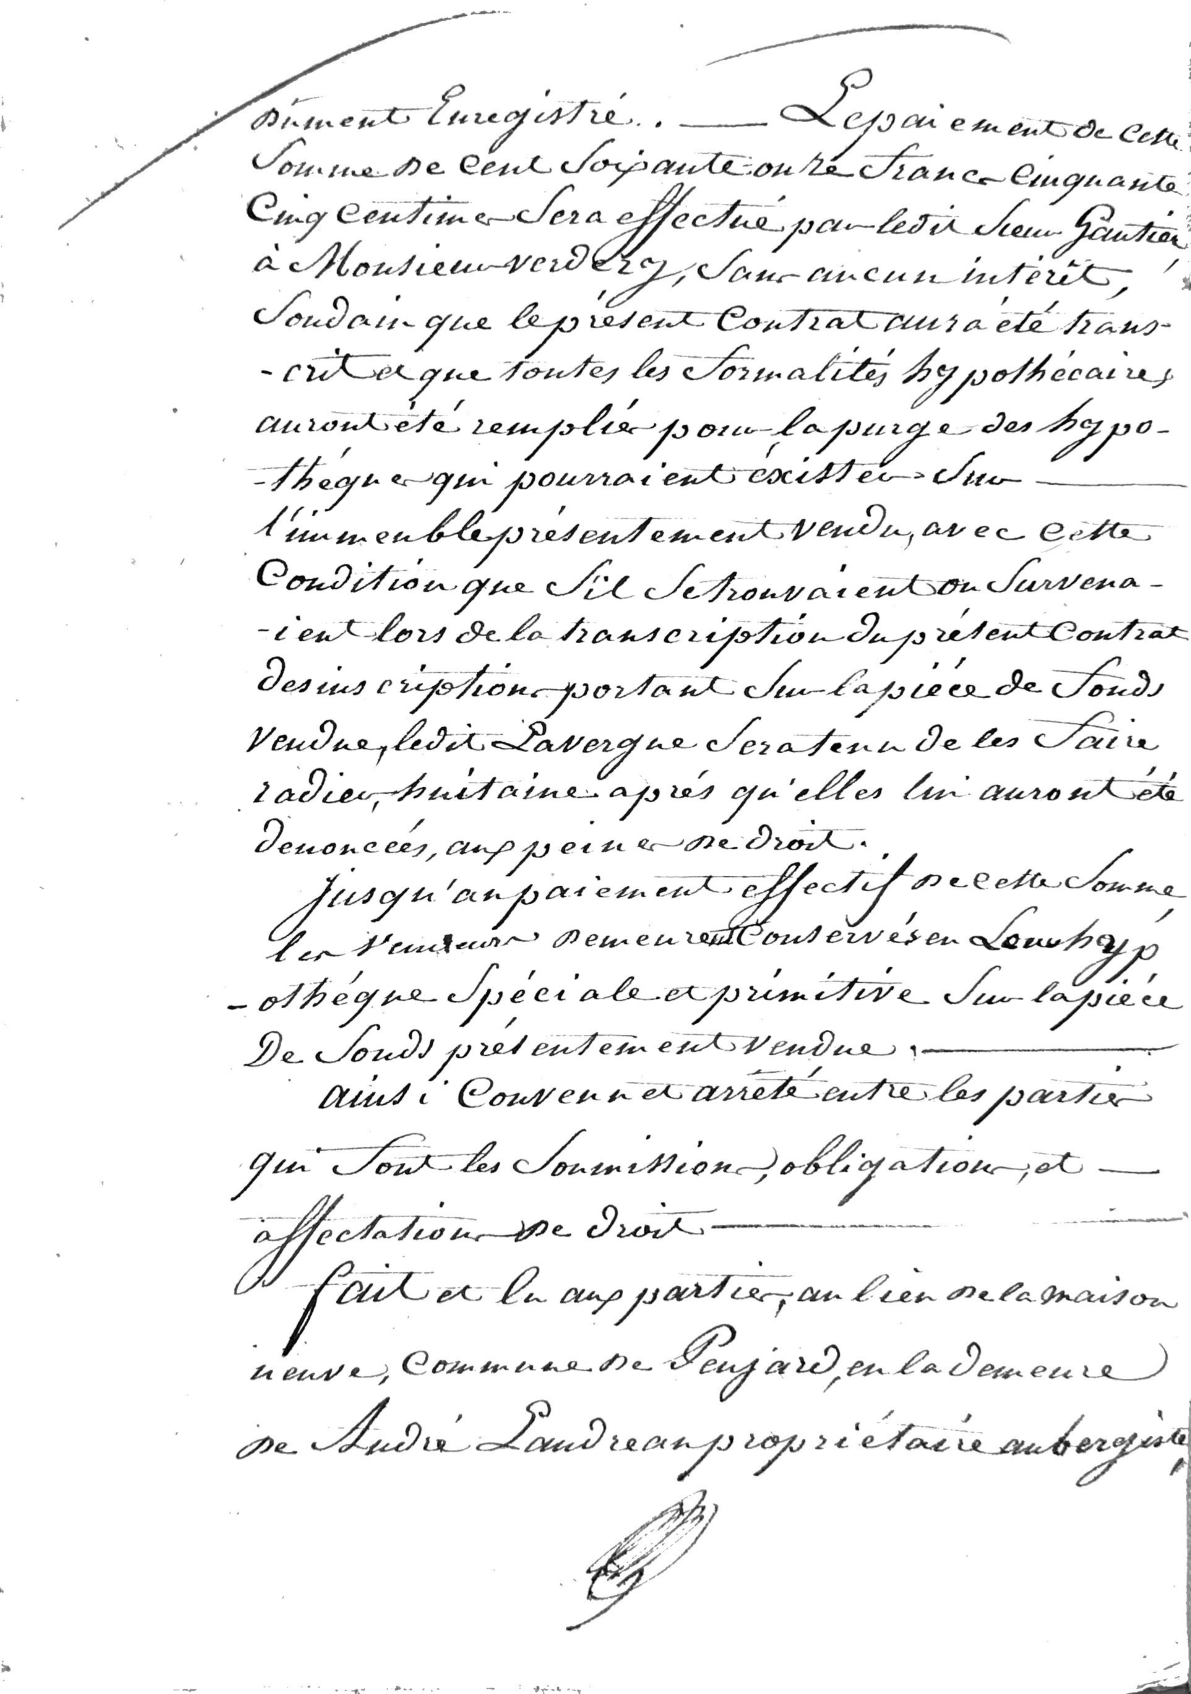 dûment Enregistré. — Le paiement de cette
Somme de cent Soixante onze francs Cinquante
Cinq Centimes Sera effectué par ledit Sieur Gautier
à Monsieur Verdery, Sans aucun intérêt,
Soudain que le présent Contrat aura été trans-
-crit et que toutes les formalités hypothécaires
auront été remplies pour la purge des hypo-
-thèques qui pourraient éxister Sur —
l'immeuble présentement vendu, avec Cette
Condition que S'il Se trouvaient ou Survena-
-ient lors de la transcription du présent Contrat
des inscriptions portant Sur la piéce de fonds
vendue, ledit Lavergne Sera tenu de les faire
radier, huitaine aprés qu'elles lui auront été
denoncées, aux peines de droit.
Jusqu'au paiement effectif de cette Somme
les Vendeurs demeurent Conservés en Leur hyp
-othéque Spéciale et primitive Sur la piéce
De fonds présentement vendue. —
ainsi Convenu et arrêté entre les parties
qui font les Soumissions, obligations, et —
affectations de droit —
fait et lu aux parties, au lieu de la maison
neuve, Commune de Peujard, en la demeure
de André Landreau propriétaire aubergiste,